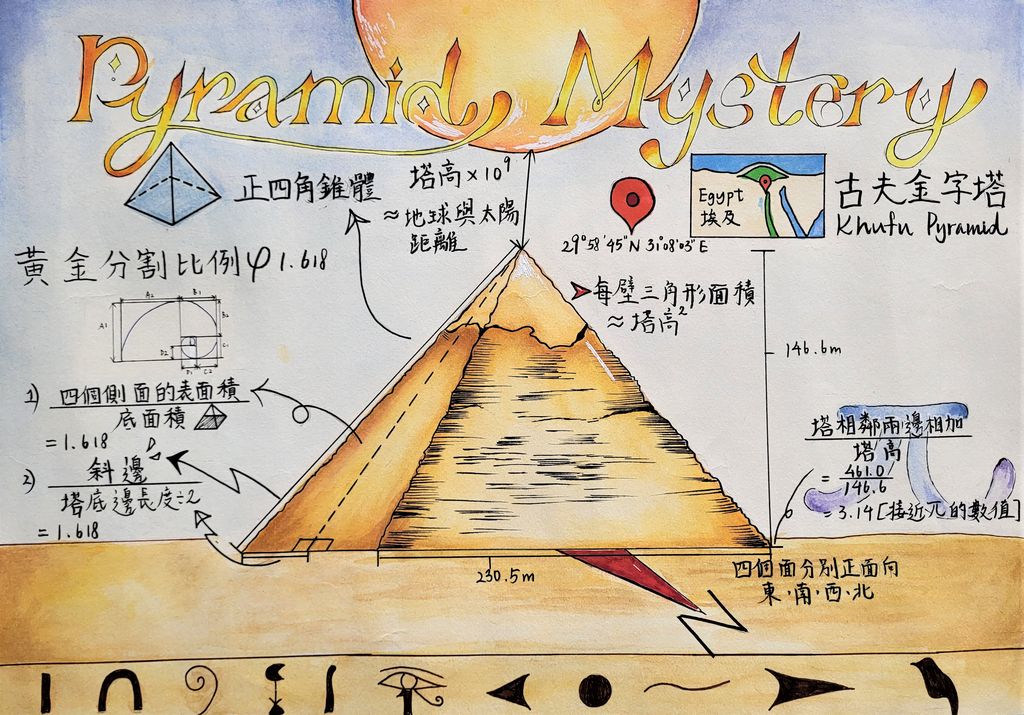 Pyramid Mystery
正四角錐體
塔高×10⁹
≈地球與太陽
距離
29°58'45"N 31°08'03"E
Egypt
埃及
古夫金字塔
Khufu Pyramid
黃金分割比例φ1.618
A2
B1
A1
B2
C1
D2
D1
C2
每壁三角形面積
≈塔高²
146.6m
1) 四個側面的表面積
底面積
=1.618
2) 斜邊
塔底邊長度÷2
=1.618
塔相鄰兩邊相加
塔高
= 461.0/
146.6
=3.14[接近π的數值]
230.5m
四個面分別正面向
東·南·西·北
N